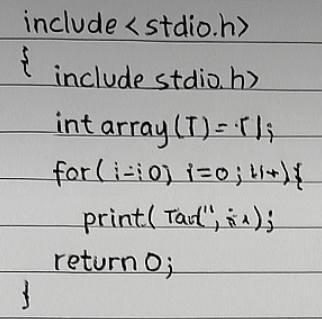 include <stdio.h>
{ include stdio.h>
int array(T) = r];
for(i=i0; i=0; ii+){
print( Tad", i );
return 0;
}